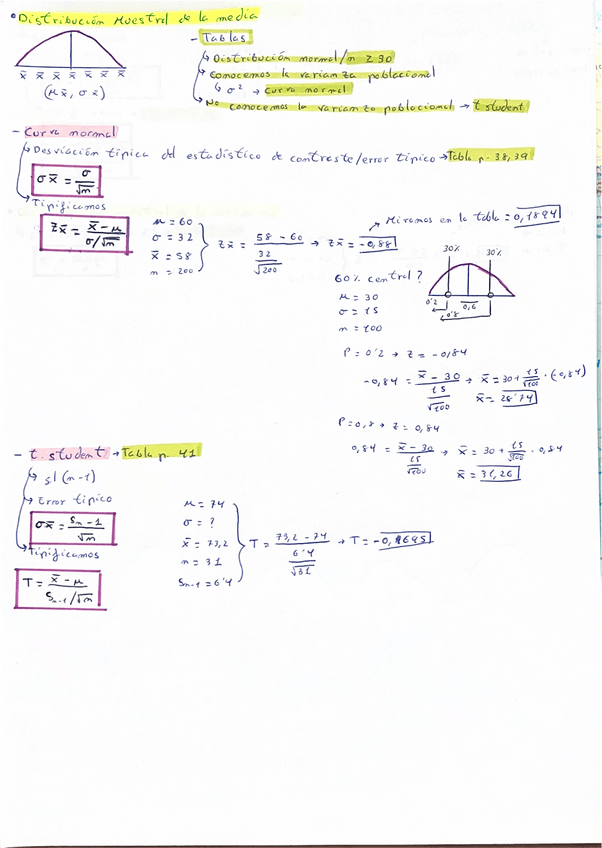 Distribución Muestral de la media
x̄ x̄ x̄ x̄ x̄ x̄ x̄
(μx̄, σx̄)
- Tablas
↳ Distribución normal/n ≥ 30
↳ Conocemos la varianza poblacional
↳ σ² → curva normal
↳ No conocemos la varianza poblacional → t student
- Curva normal
↳ Desviación típica del estadístico de contraste/error típico → Tabla p. 38,39
σx̄ = σ/√n
↳ Tipificamos
Zx̄ = x̄ - μ / σ/√n
μ = 60
σ = 32
x̄ = 58
n = 200
Zx̄ = 58 - 60 / 32/√200 → Zx̄ = -0,88
→ Miramos en la tabla = 0,1894
60% central?
μ = 30
σ = 15
n = 100
30% 30%
0'2 0,6
0'8
P = 0'2 → Z = -0,84
-0,84 = x̄ - 30 / 15/√100 → x̄ = 30 + 15/√100 · (-0,84)
x̄ = 28'74
P = 0,8 → Z = 0,84
0,84 = x̄ - 30 / 15/√100 → x̄ = 30 + 15/√100 · 0,84
x̄ = 31,26
- t. student → Tabla p. 41
↳ gl (n-1)
↳ Error típico
σx̄ = Sn-1/√n
↳ Tipificamos
T = x̄ - μ / Sn-1/√n
μ = 74
σ = ?
x̄ = 73,2
n = 31
Sn-1 = 6'4
T = 73,2 - 74 / 6'4/√31 → T =